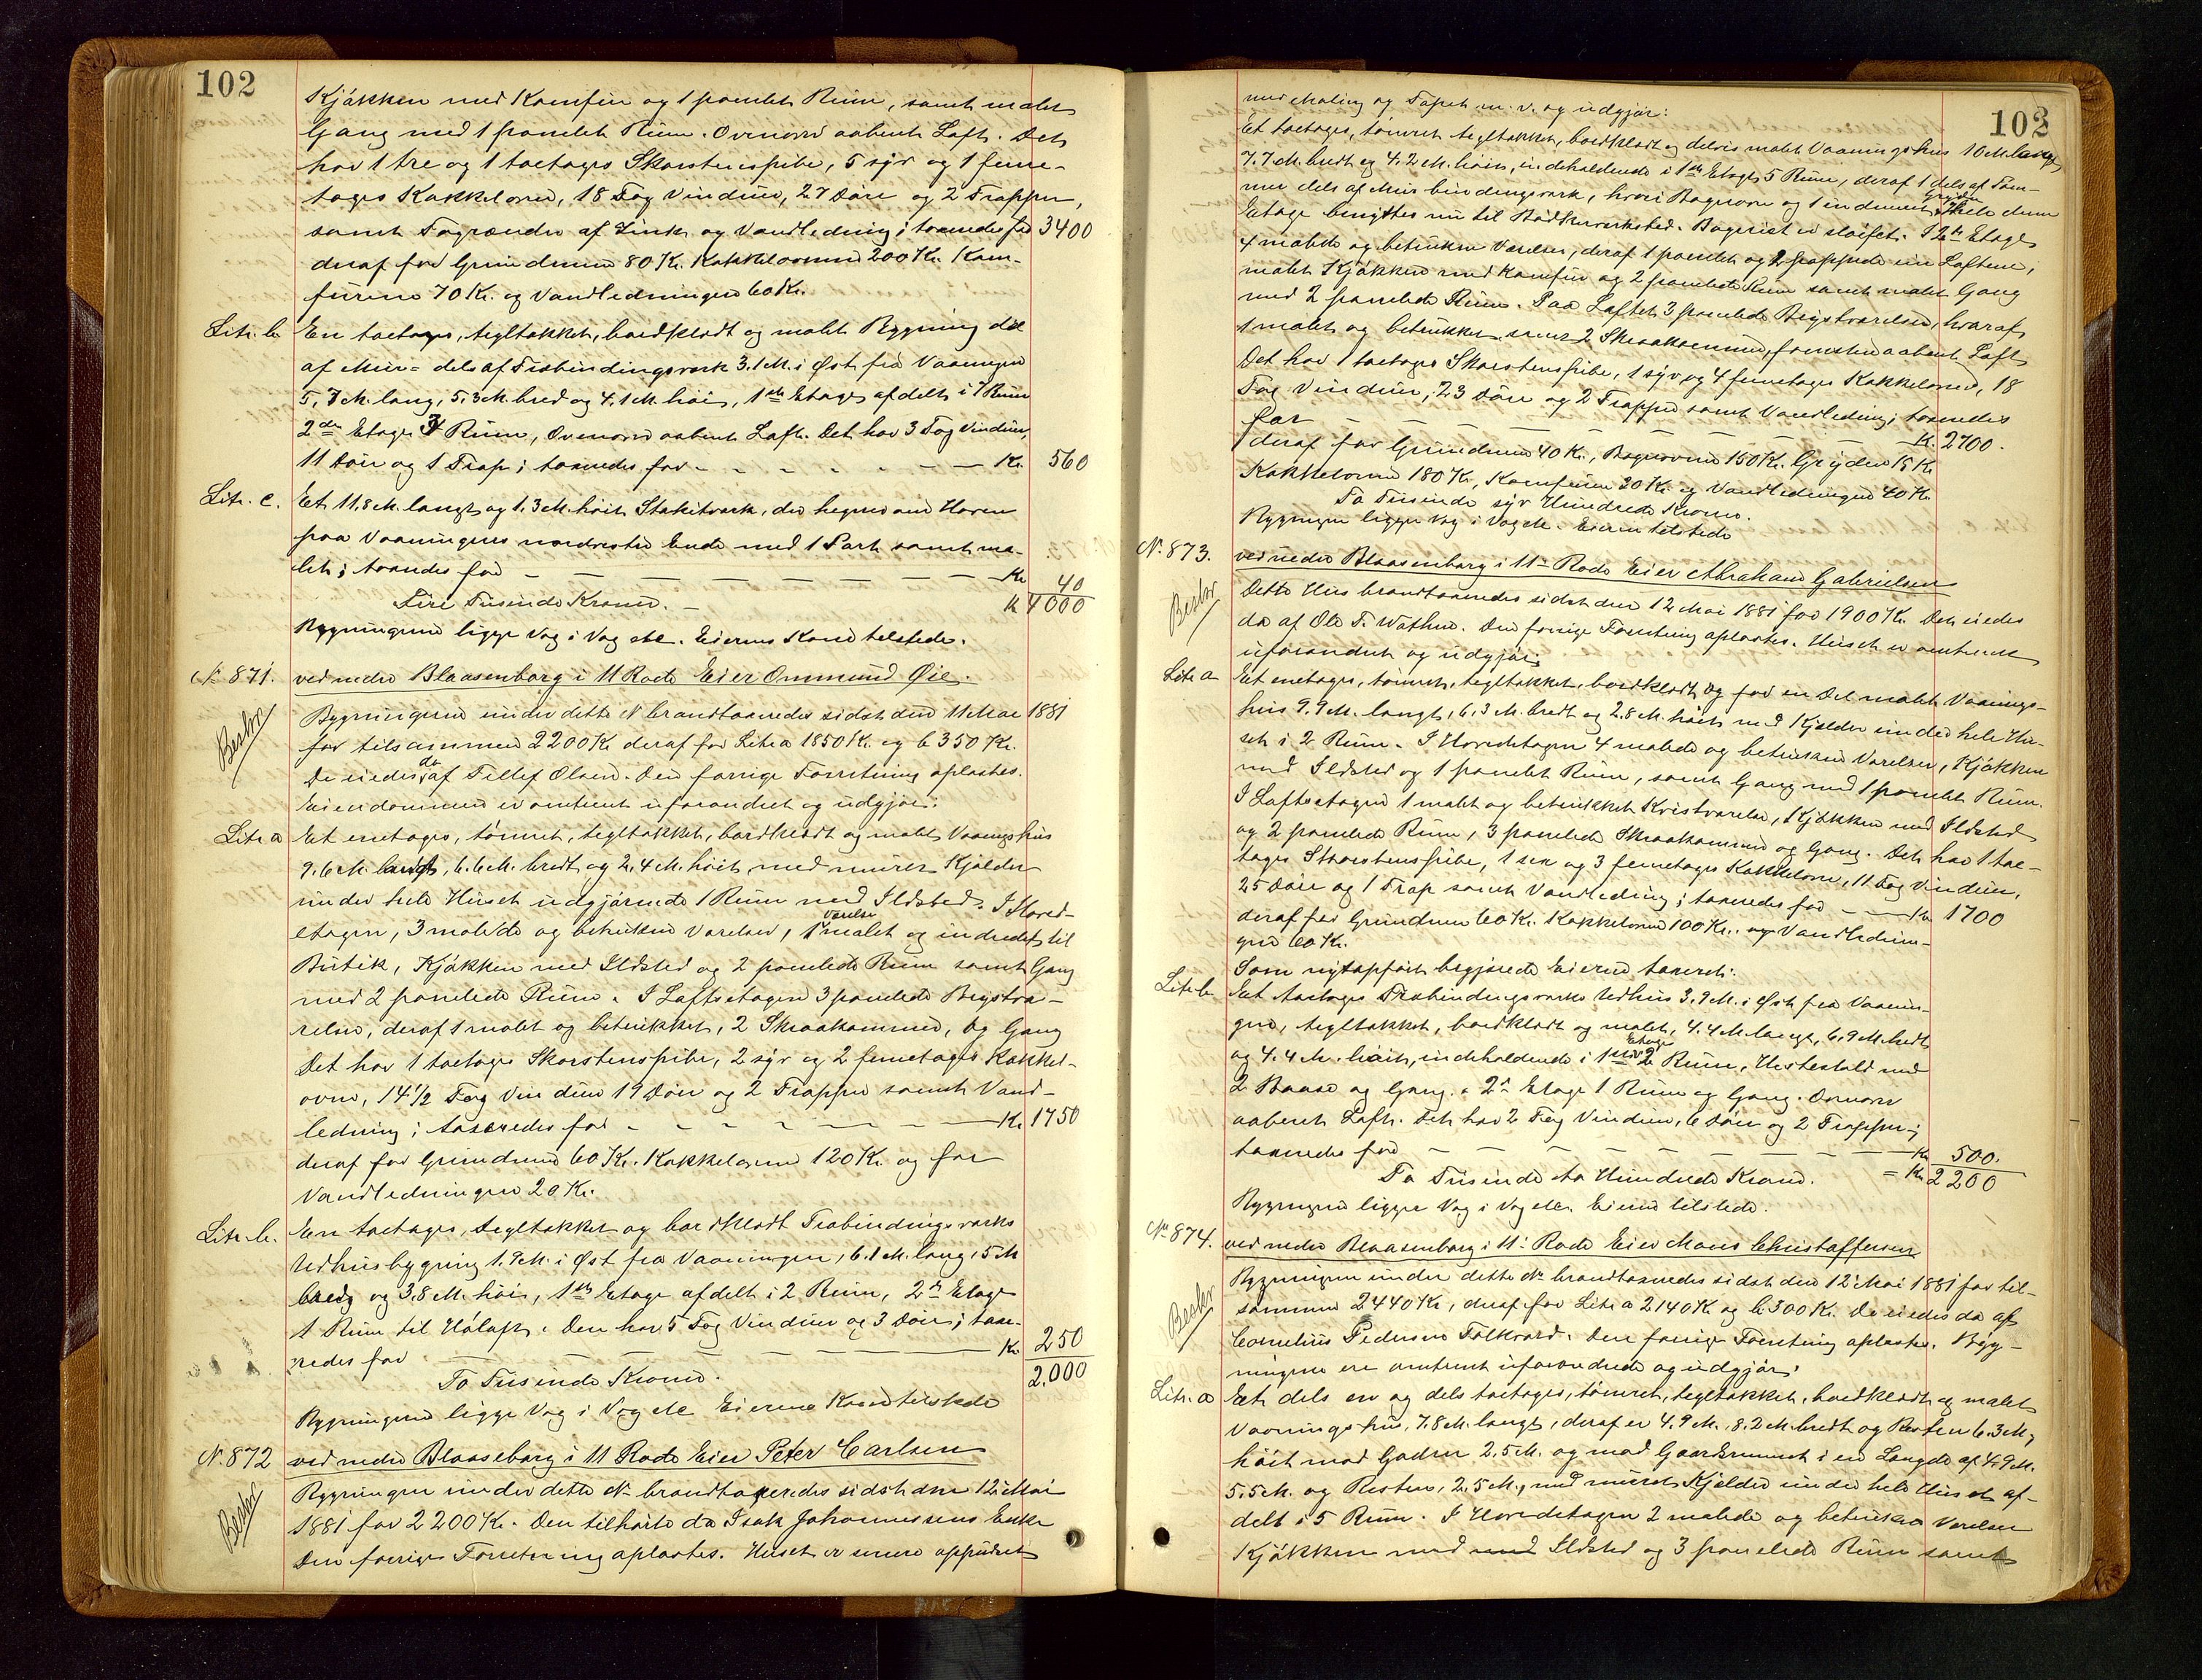 102
Kjøkken med Komfur og 1 panelet Rum, samt malet
Gang med 1 panelet Rum. Ovenover aabent Loft. Det
har 1 tre og 1 toetages Skorstenspibe, 5 syv og 1 feme-
tages Kakkelovne, 18 Fag Vinduer, 27 Døre og 2 Trapper,
samt Tagrender af Zink og Vandledning; taxeredes for 3400
deraf for Grundmure 80 Kr. Kakkelovnene 200 Kr. Kom-
furene 70 Kr. og Vandledningen 60 Kr.
Litr. b. En toetages, tegltækket, bordklædt og malet Bygning del
af Mur- dels af Træbindingsværk 3.1 M. i Øst fra Vaaningen
5,7 M. lang, 5,3 M. bred og 4,1 M. høi, 1ste Etage afdelt i 1 Rum
2den Etage 3 Rum, Ovenover aabent Loft. Det har 3 Fag Vinduer,
11 Døre og 1 Trap; taxeredes for - - - - - Kr. 560
Litr. c. Et 11,8 M. langt og 1,3 M. høit Stakitværk, der hegner om Haven
paa Vaaningens nordvestre Ende med 1 Port samt ma-
let; taxeredes for - - - - - Kr 40
Fire Tusinde Kroner. - K 4000
Bygningerne ligge Vag i Vag etc. Eierens Kone tilstede.
No 871. ved nedre Blaasenborg i 11 Rode Eier Ommund Øie.
Besbor
Bygningerne under dette No brandtaxeredes sidst den 11 Mai 1881
for tilsammen 2200 Kr deraf for Litr a 1850 Kr. og b 350 Kr.
De eiedes da af Tellef Olsen. Den forrige Forretning oplæstes.
Eiendommen er omtrent uforandret og udgjør:
Litr a Et enetages, tømret, tegltækket, bordklædt og malet Vaaningshus
9.6 M. langt, 6.6 M. bredt og 2,4 M. høit, med muret Kjælder
under hele Huset udgjørende 1 Rum med Ildsted. I Hoved-
etagen, 3 malede og betrukne Værelser, 1 Værelse malet og indredet til
Butik, Kjøkken med Ildsted og 2 panelede Rum samt Gang
med 2 panelede Rum. I Loftsetagen 3 panelede Kvistvæ-
relser, deraf 1 malet og betrukket, 2 Skraakammer, og Gang
Det har 1 toetages Skorstenspibe, 2 syv og 2 femetages Kakkel-
ovne, 14½ Fag Vinduer 19 Døre og 2 Trapper samt Vand-
ledning; taxeredes for - - - - - Kr. 1750
deraf for Grundmure 60 Kr. Kakkelovnene 120 Kr. og for
Vandledningen 20 Kr.
Litr. b. En toetages, tegltækket og bordklædt Træbindingsværks
Udhusbygning 1.9 M. i Øst fra Vaaningen, 6.1 M. lang, 5 M
bred og 3,8 M. høi, 1ste Etage afdelt i 2 Rum, 2den Etage
1 Rum til Høloft. Den har 5 Fag Vinduer og 3 Døre; taxe-
redes for - - - - - Kr. 250
To Tusinde Kroner. 2,000
Bygningerne ligge Vag i Vag etc Eierens Kone tilstede
No. 872 ved nedre Blaaseborg i 11 Rode Eier Peter Carlsen
Besbor
Bygningen under dette No brandtaxeredes sidst den 12te Mai
1881 for 2200 Kr. Den tilhørte da Isak Johannessens Enke
Den forrige Forretning oplæstes. Huset er senere oppudset
102
med Maling og Tapet m. v. og udgjør:
Et toetages, tømret, tegltækket, bordklædt og delvis malet Vaaningshus 10 M. langt,
7.7 M. bredt og 4.2 M. høit, indeholdende i 1ste Etage 5 Rum, deraf 1 dels af Tøm-
mer dels af Mur bindingsværk, hvori Bagerovn og 1 indmuret Gryde. Hele denne
Etage benyttes nu til Bødkerværksted. Bageriet er sløifet. I 2den Etage
4 malede og betrukne Værelser, deraf 1 panelet og 2 gipsede under Loftene,
malet Kjøkken med Komfur og 2 panelede Rum samt malet Gang
med 2 panelede Rum. Paa Loftet 3 panelede Kvistværelser, hvoraf
1 malet og betrukket, samt 2 Skraakammer, forresten aabent Loft
Det har 1 toetages Skorstenspibe, 1 syv og 4 femetages Kakkelovne, 18
Fag Vinduer, 23 Døre og 2 Trapper samt Vandledning; taxeredes
for - - - - - K. 2700.
deraf for Grundmure 40 Kr., Bagerovnen 150 Kr. Gryden 15 Kr
Kakkelovnene 180 Kr, Komfuren 20 Kr. og Vandledningen 40 Kr.
To Tusinde syv Hundrede Kroner.
Bygningen ligger Vag i Vag etc. Eieren tilstede
No. 873. ved nedre Blaasenborg i 11te Rode Eier Abraham Gabrielsen
Besbor
Dette Hus brandtaxeredes sidst den 12 Mai 1881 for 1900 Kr. Det eiedes
da af Ole T. Wathne. Den forrige Forretning oplæstes. Huset er omtrent
uforandret og udgjør:
Litr a Et enetages, tømret, tegltækket, bordklædt og for en Del malet Vaanings-
hus 9.9 M. langt, 6,3 M. bredt og 2,8 M. høit med Kjælder under hele Hu-
set i 2 Rum. I Hovedetagen 4 malede og betrukne Værelser, Kjøkken
med Ildsted og 1 panelet Rum, samt Gang med 1 panelet Rum.
I Loftsetagen 1 malet og betrukket Kvistværelse, Kjøkken med Ildsted
og 2 panelede Rum, 3 panelede Skraakammer og Gang. Det har 1 toe-
tages Skorstenspibe, 1 sex og 3 femetages Kakkelovne, 11 Fag Vinduer,
25 Døre og 1 Trap samt Vandledning; taxeredes for - - Kr 1700
deraf for Grundmure 60 Kr. Kakkelovnene 100 Kr. og Vandlednin-
gen 60 Kr.
Som nyt opført begjærede Eieren taxeret:
Litr b Et toetages Træbindingsværks Udhus 3.9 M. i Øst fra Vaanin-
gen, tegltækket, bordklædt og malet, 4.4 M. langt, 6,9 M. bredt
og 4.4 M. høit, indeholdende i 1ste Etage 2 Rum, Hestestald med
2 Baase og Gang. 2den Etage 1 Rum og Gang. Ovenover
aabent Loft. Det har 2 Fag Vinduer, 6 Døre og 2 Trapper;
taxeredes for - - - - - Kr 500.
To Tusinde to Hundrede Kroner. = Kr 2200
Bygningen ligger Vag i Vag etc. Eieren tilstede.
No 874. ved nedre Blaasenborg i 11te Rode Eier Mons Christoffersen
Besbor
Bygningen under dette No brandtaxeredes sidst den 12te Mai 1881 for til-
sammen 2440 Kr, deraf for Litr a 2140 Kr og b 300 Kr. De eiedes da af
Cornelius Pedersen Falkvard. Den forrige Forretning oplæstes. Byg-
ningene ere omtrent uforandrede og udgjør:
Litr. a Et dels en og dels toetages, tømret, tegltækket, bordklædt og malet
Vaaningshus, 7.8 M. langt, deraf er 4,9 M. 8.2 M. bredt og Resten 6.3 M,
høit mod Gaden 2,5 M. og mod Gaardsrummet i en Længde af 4,9 M.
5.5 M. og Resten, 2,5 M., med muret Kjælder under hele Huset af-
delt i 5 Rum. I Hovedetagen 2 malede og betrukne Værelser
Kjøkken med med Ildsted og 3 panelede Rum samt